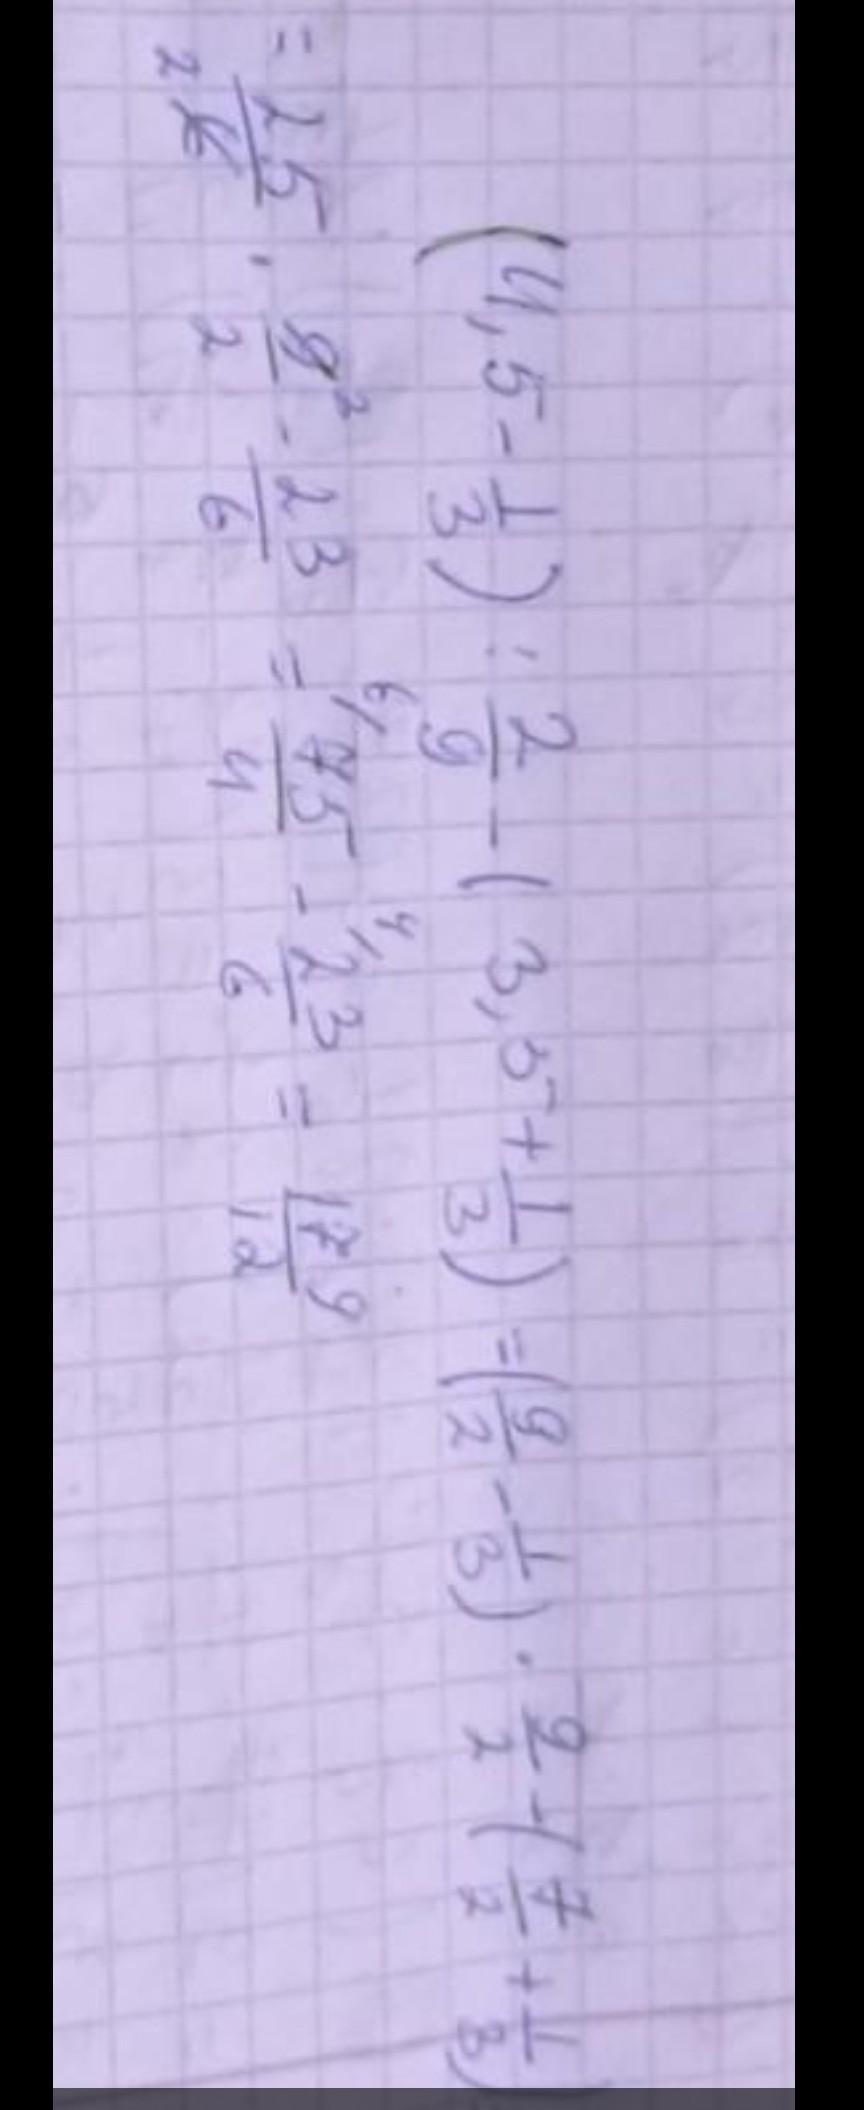 (4,5 - 1/3) : 2/9 - (3,5 + 1/3) = (9/2 - 1/3) · 9/2 - (7/2 + 1/3)
= 25/6 2 · 9/2 2 - 23/6 = 6/ 75/4 - 4/ 23/6 = 179/12